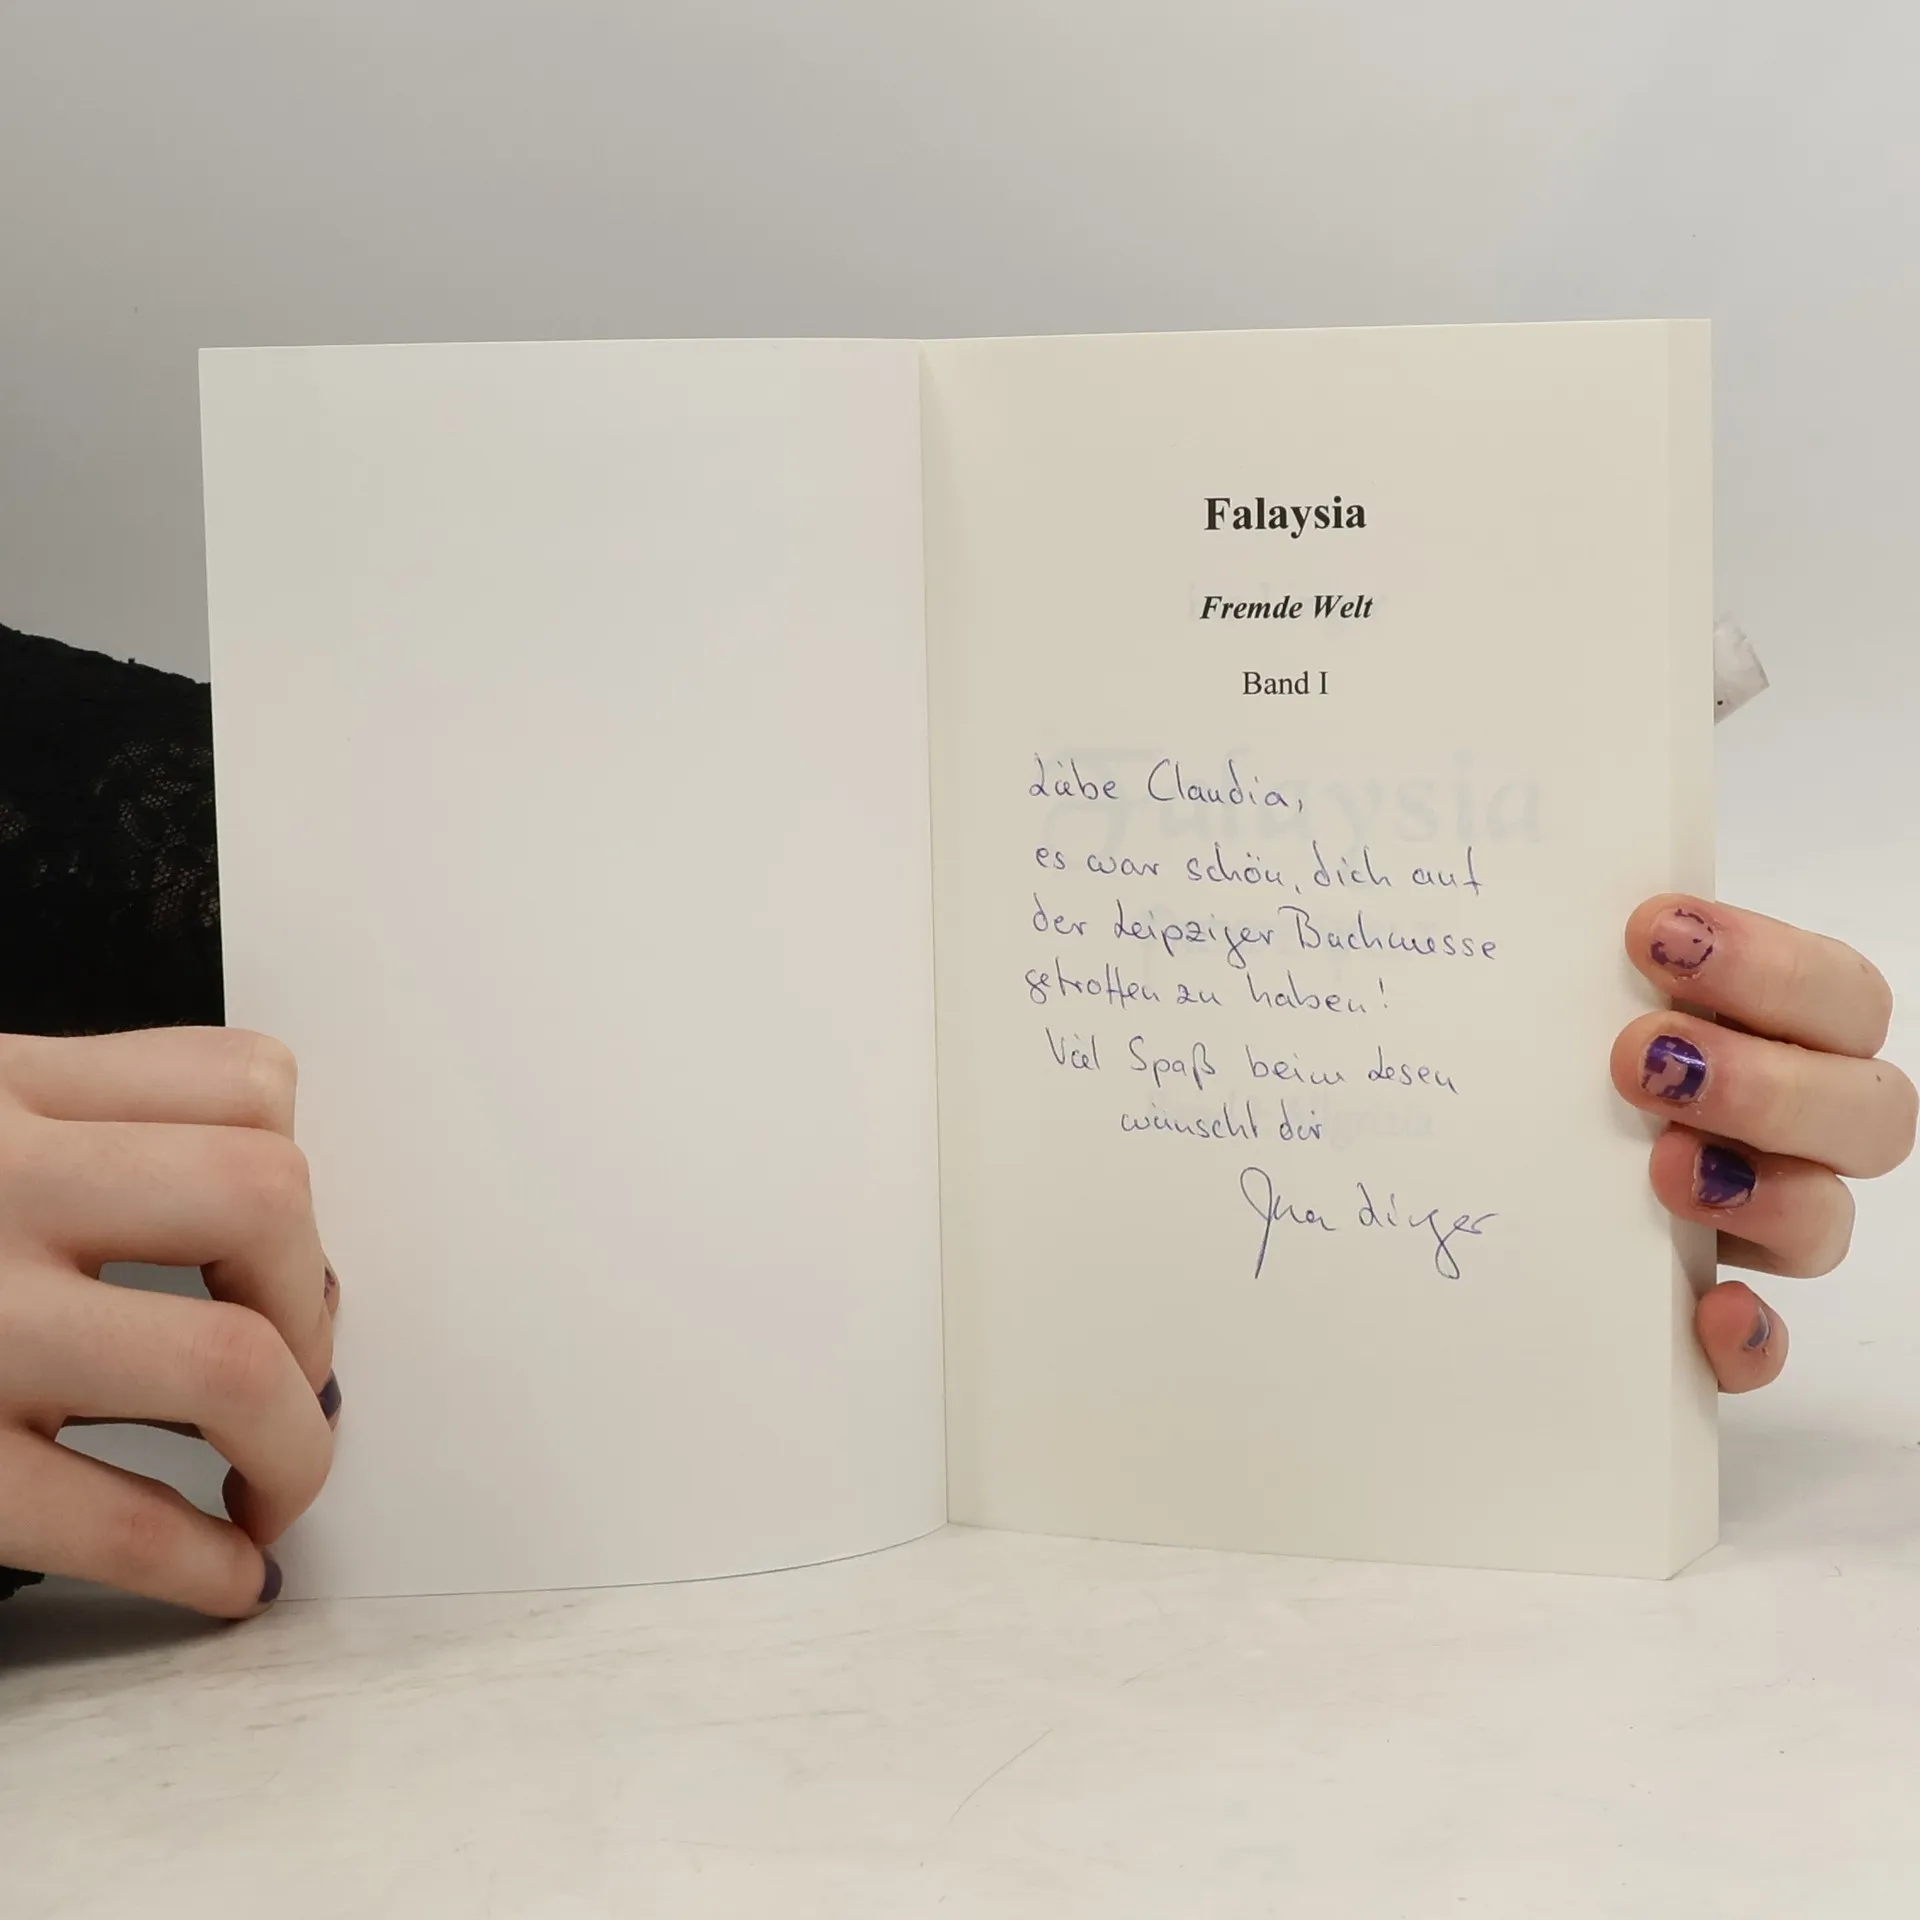 Falaysia
Fremde Welt
Band I
Liebe Claudia,
es war schön, dich auf
der Leipziger Buchmesse
getroffen zu haben!
Viel Spaß beim Lesen
wünscht dir
Ina Linger